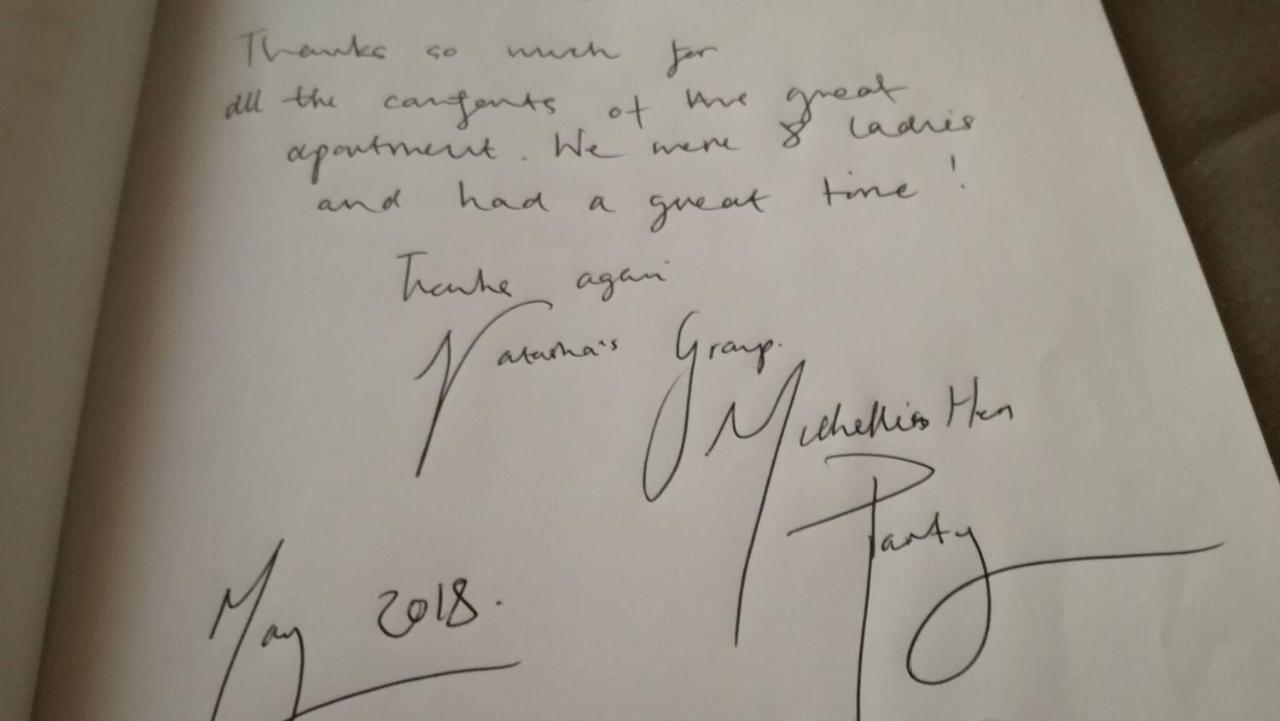 Thanks so much for
all the comforts of the great
apartment. We were 8 ladies
and had a great time!
Thanks again
Natasha's Group.
Michelle's Hen
Party
May 2018.